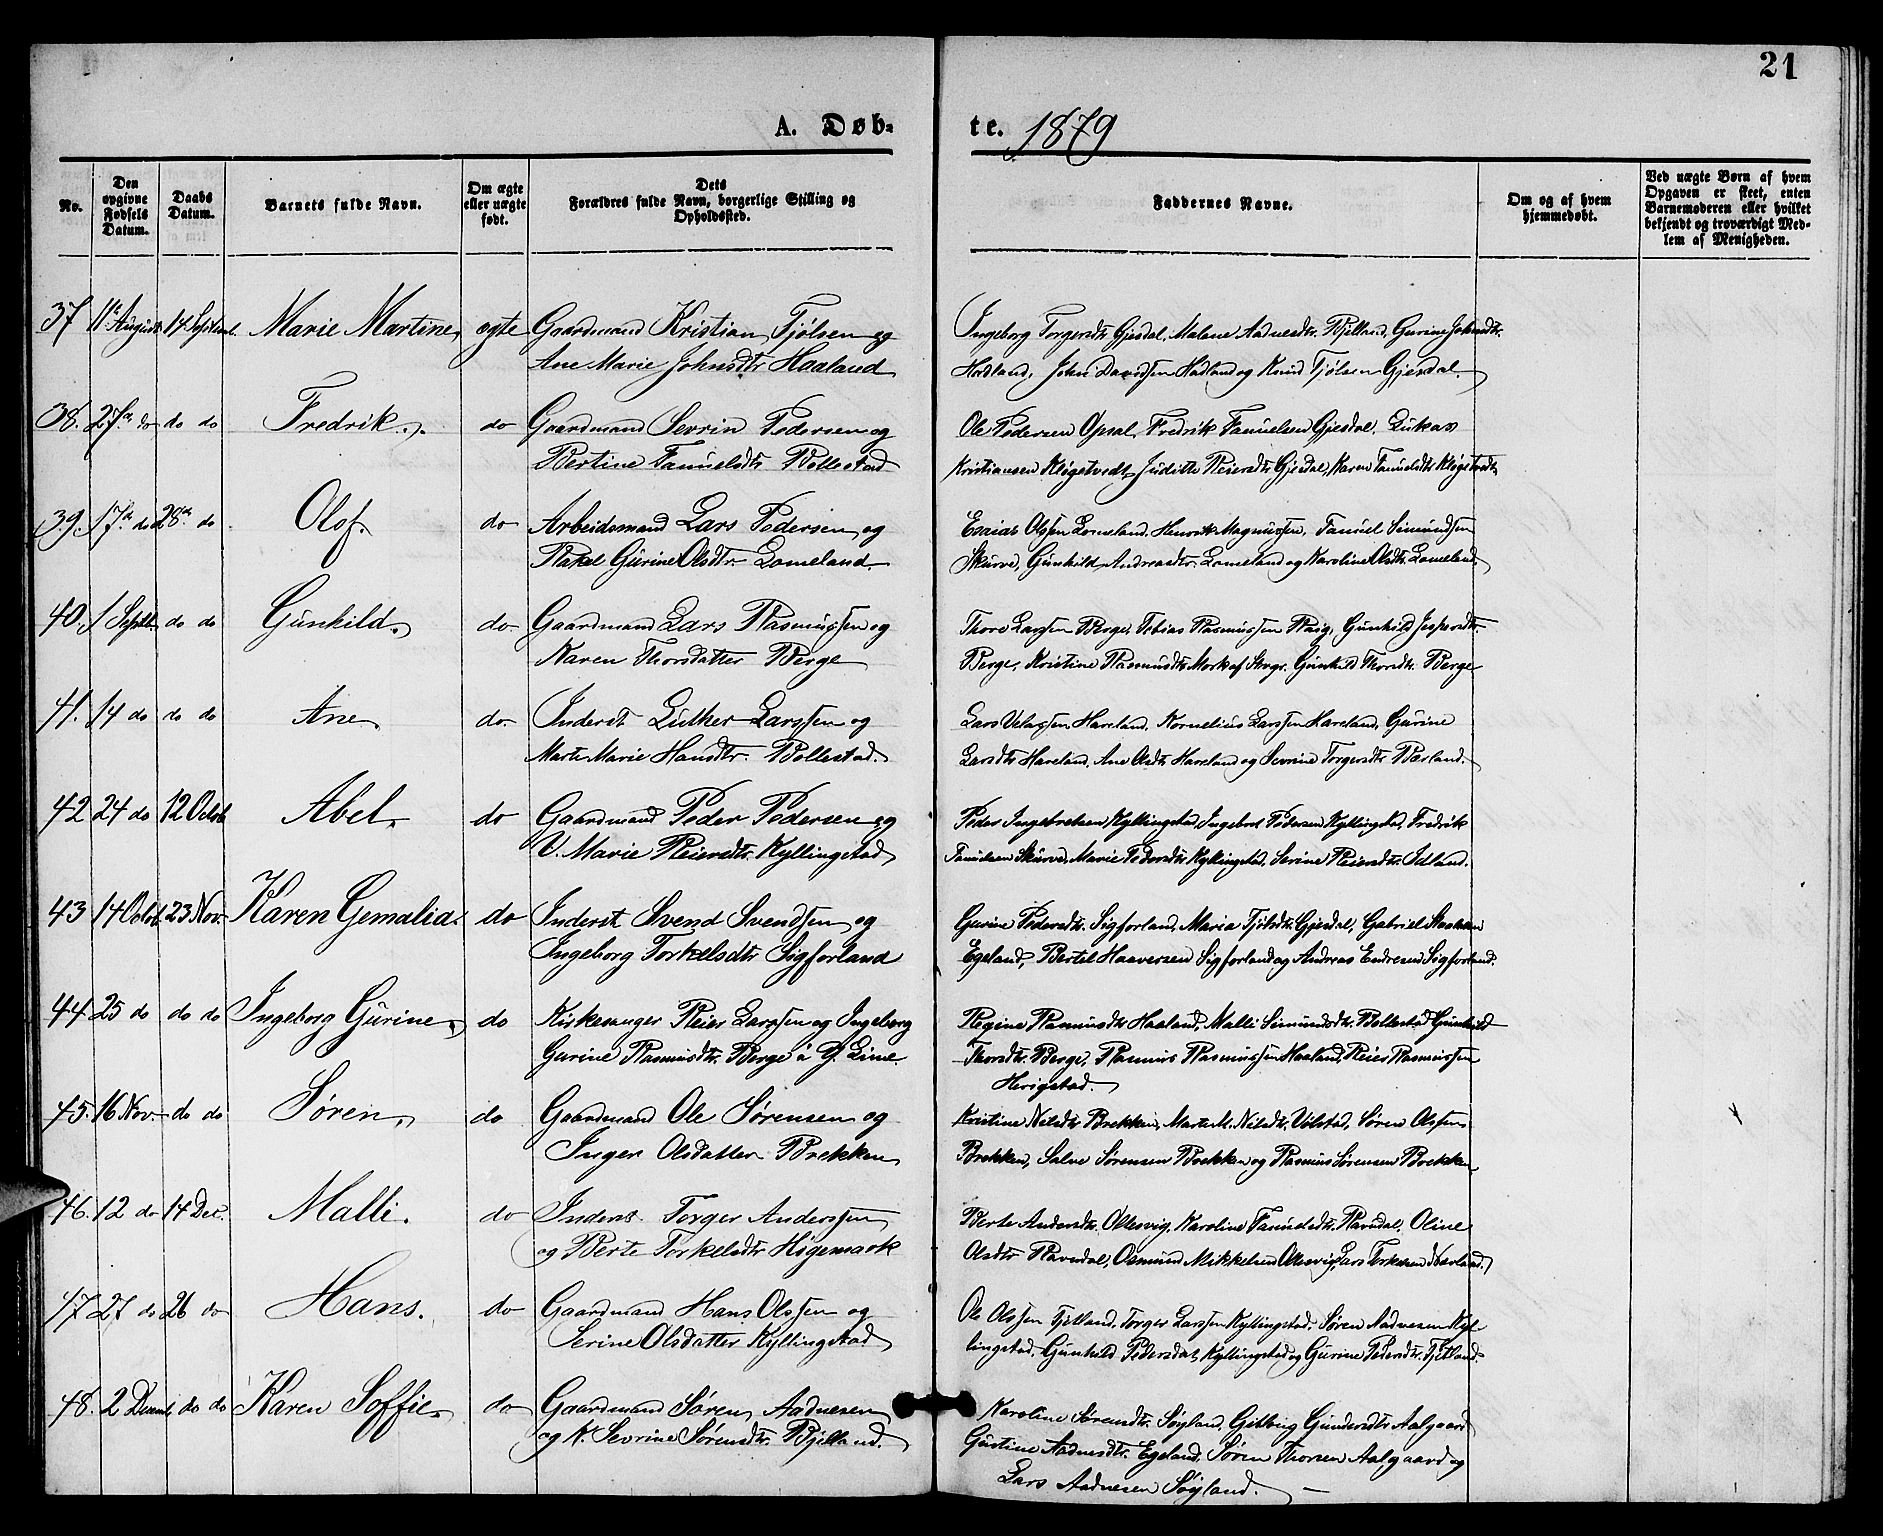 21
A. Døb-
te. 1879
No.
Den opgivne Fødsels Datum.
Daabs Datum.
Barnets fulde Navn.
Om ægte eller uægte født.
Dets Forældres fulde Navn, borgerlige Stilling og Opholdssted.
Faddernes Navne.
Om og af hvem hjemmedøbt.
Ved uægte Børn af hvem Opgaven er skeet, enten Barnemoderen eller hvilket bekjendt og troværdigt Medlem af Menigheden.
37 11te August 14 Septemb. Marie Martine, ægte Gaardmand Kristian Tjølsen og
Ane Marie Johnsdtr Haaland
Ingeborg Torgersdtr Gjesdal, Malene Aadnesdtr. Bjelland, Gurine Johnsdtr.
Hadland, John Davidsen Hadland og Knud Tjølsen Gjesdal.
38. 27de do do do Fredrik. do Gaardmand Sevrin Pedersen og
Bertine Tanuelsdtr Bollestad
Ole Pedersen Opsal, Fredrik Tanuelsen Gjesdal, Lukas
Kristiansen Kløgetvedt, Judith Reiersdtr Gjesdal, Karen Tanuelsdtr Kløgetvedt
39. 17de do 28de do Olof. do Arbeidsmand Lars Pedersen og
Rakel Gurine Olsdtr Lomeland
Esaias Olssen Lomeland, Henrik Magnussen, Tanuel Simundsen
Skurve, Gunhild Andreasdtr. Lomeland og Karoline Olsdtr. Lomeland.
40. 1 Septb. do do Gunhild. do Gaardmand Lars Rasmussen og
Karen Thorsdatter Berge
Thore Larssen Berge, Tobias Rasmussen, Gunhild Jespersdtr
Berge, Kristine Rasmusdtr Gunhild Thorsdtr. Berge
41. 14 do do do Ane do Inderst Luther Larssen og
Marta Marie Hansdtr. Bollestad.
Lars Haveland, Kornelius Larssen Haveland, Gurine
Larsdtr Haveland, Ane Olsdtr Haveland og Sevrine Torgersdtr Bærland.
42 24 do 12 Octob Abel. do Gaardmand Peder Pedersen og
V. Marie Reiersdtr. Kyllingstad
Peder Ingebretsen Kyllingstad, Ingebret Pedersen Kyllingstad, Fredrik
Tanuelsen Skurve, Marie Pedersdtr Kyllingstad, Serine Reiersdtr. Idland.
43 14 Octob. 23 Nov. Karen Gemalia. do Inderst Svend Svendsen og
Ingeborg Torkelsdtr Sigforland
Gurine Pedersdtr. Sigforland, Maria Tjølsdtr. Gjesdal, Gabriel
Egeland, Bertil Haaversen Sigforland og Andreas Endresen Sigforland.
44 25 do do do Ingeborg Gurine. do Kirkesanger Reier Larssen og Ingeborg
Gurine Rasmusdtr. Berge a G. Lime.
Regine Rasmusdtr Haaland, Malli Simundsdtr. Bollestad, Gunhild
Thorsdtr. Berge, Rasmus Rasmussen Haaland, Reier Rasmussen
Herigstad.
45. 16 Nov. do do Søren. do Gaardmand Ole Sørensen og
Inger Olsdatter Brekken
Kristine Nilsdtr Brekken, Marte M. Nilsdtr. Vølstad, Søren Olssen
Brekken, Salve Sørensen Brekken og Rasmus Sørensen Brekken
46. 12 do 14 Dec. Malli. do Inderst Torger Anderssen
og Berte Torkelsdtr Høgemark
Berte Andersdtr. Oltesvig, Karoline Tanuelsdtr. Ravndal, Oline
Olsdtr Ravndal, Osmund Mikkelsen Oltesvig, Lars
47 27 do 26 do Hans. do Gaardmand Hans Olssen og
Serine Olsdatter Kyllingstad
Ole Olssen Fjetland, Torger Larssen Kyllingstad, Søren Aadnesen Kyl
lingstad, Gunhild Pedersdat. Kyllingstad og Gurine Pedersdtr. Fjetland.
48. 2 Decemb. do do Karen Soffie. do Gaardmand Søren Aadnesen
og K. Sevrine Sørensdtr. Bjelland.
Karoline Sørensdtr. Søyland, Gitborg Gundersdtr Aalgaard
Gustine Aadnesdtr. Egeland, Søren Thorsen Aalgaard og
Lars Aadnesen Søyland.